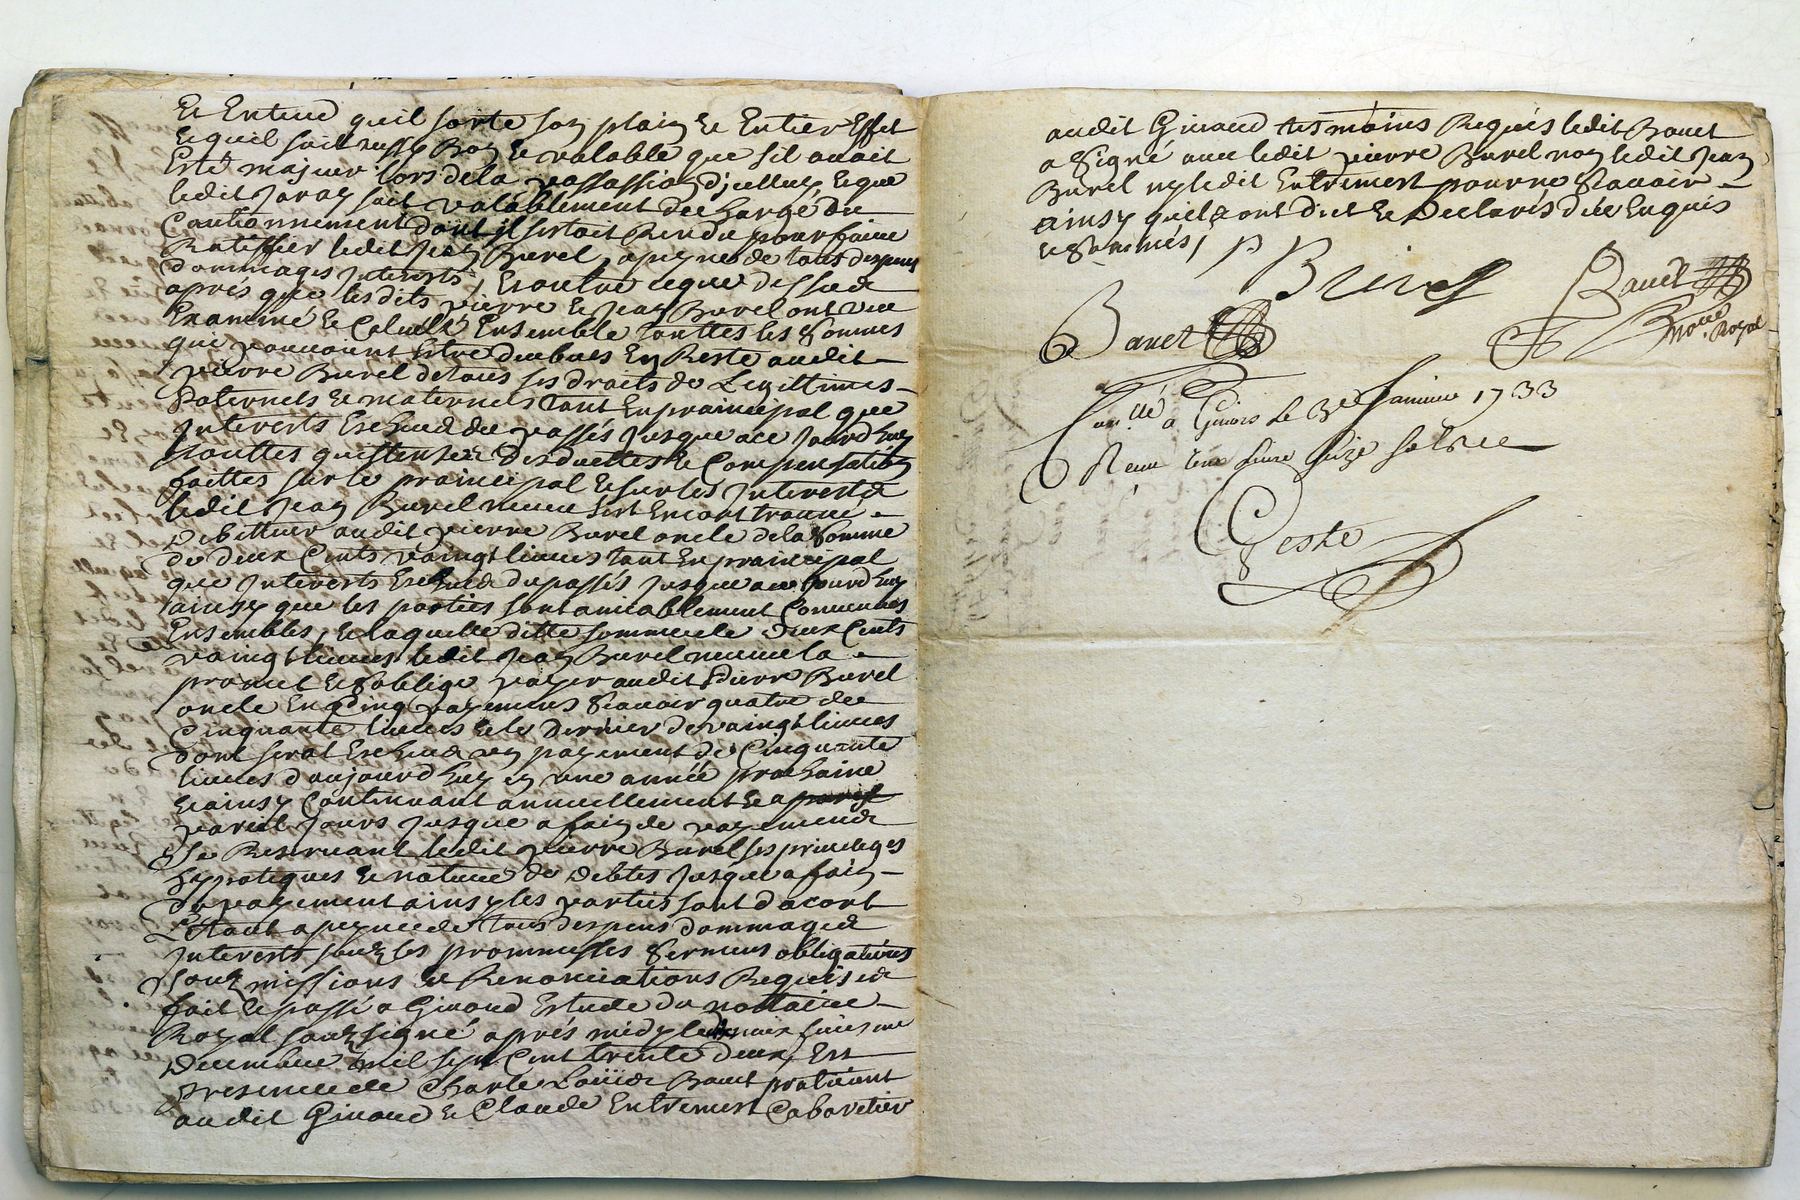 Et Entend quil sorte son plain Et Entier Effet
Et quil soit aussy Bon Et valable que sil avait
Esté majeur lors de la passassion djcelluy, Et que
ledit Jaray soit valablement decharge du
Cautionnement dont il sestoit Rendu pour faire
Ratiffier ledit Jean Burel, a peyne de tous despens
dommages Interests, Et outre ce que dessus
aprés que lesdits pierre Et Jean Burel ont veu
Examiné Et Calculé Ensemble touttes les sommes
qui pouvoient Estre deubues En Reste audit
pierre Burel de tous ses droits de Legittimes
Paternels Et maternels tant En prainsipal que
Interests Escheus du passés jusque a ce jourdhuy
touttes quistences desduettes Et Compensation
faittes sur le prainsipal Et sur les Interests
ledit Jean Burel neveu sest Encor trouvé
Debitteur audit pierre Burel oncle de la somme
de deux Cents vaingt livres tant En prainsipal
que Interests Escheus du passés jusque a ce jourdhuy
ainsy que les parties sont amiablement Convenues
Ensembles, Et laquelle ditte somme de deux Cents
vaingt livres ledit Jean Burel neveu la
promet Et soblige payer audit Pierre Burel
oncle En Cinq payemens Scavoir quatre de
Cinquante livres Et le Dernier de vaingt livres
dont serat Escheus un payement de Cinquante
livres daujourdhuy En une année prochaine
Et ainsy Continuant annuellement Et a
pareil jours jusque a fain de payement
Se Reservant ledit pierre Burel ses privileges
hypoteques Et nature de debtes jusque a fain
de payement ainsy les parties sont dacort
Et tout a peyne de tous despens dommages
Interests souz les prommesses sermens obligations
souzmissions Et Renonciations Requises
fait Et passé a Givord Estude du nottaire
Royal souzsigné aprés midy le
Decembre mil sept Cent trente deux, En
presence de Charle Loüis Bavet praticient
audit Givord Et Claude Entremert Cabaretier
audit Givord tesmoins Requis ledit Bavet
a Signé avec ledit pierre Burel non ledit Jean
Burel ny ledit Entremert pour ne Scavoir
ainsy quils ont dict Et Declarés de ce Enquis
Et Sommés,
P Burel
Bavet
Bavet
no.re Royal
Con.llé a Givors le 3e Janvier 1733
Receu une livre seize sols
Geste